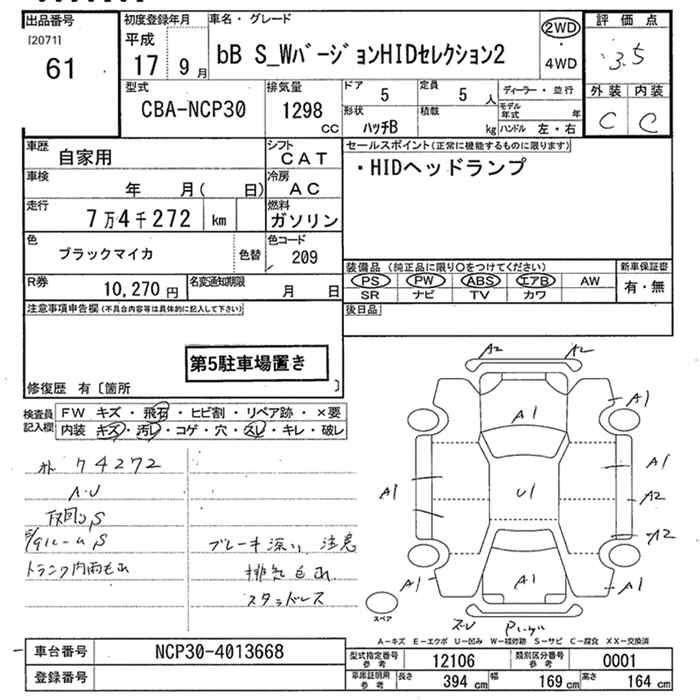 出品番号
[2071]
61
初度登録年月
平成
17 9月
車名・グレード
bB S_WバージョンHIDセレクション2
2WD
・
4WD
評価点
3.5
外装 内装
C C
型式
CBA-NCP30
排気量
1298
cc
ドア
5
定員
5 人
形状
ハッチB
積載
kg
ディーラー・並行
モデル年式 年
ハンドル 左・右
車歴
自家用
シフト
CAT
車検
年 月( 日)
冷房
AC
走行
7万4千272 km
燃料
ガソリン
色
ブラックマイカ
色替
色コード
209
R券
10,270 円
名変通知期限
月 日
セールスポイント(正常に機能するものに限ります)
・HIDヘッドランプ
装備品(純正品に限り○をつけてください)
PS PW ABS エアB AW
SR ナビ TV カワ
新車保証書
有・無
後日品
注意事項申告欄(不具合内容等は具体的に記入して下さい)
第5駐車場置き
修復歴 有〔箇所 〕
検査員記入欄
FW キズ・飛石・ヒビ割・リペア跡・×要
内装 キズ・汚レ・コゲ・穴・スレ・キレ・破レ
74272
A・U
S
S
トランク内雨もれ
ブレーキ深い 注意
排気もれ
スタッドレス
A2 A2
A1
A1
A1
A1
A1
A2
U1
A2
A1
A1
A1
スペア
ズ・U
A-キズ E-エクボ U-凹み W-補修跡 S-サビ C-腐食 XX-交換済
車台番号
NCP30-4013668
登録番号
型式指定番号
参考
12106
類別区分番号
参考
0001
車庫証明用
参考
長さ
394 cm
幅
169 cm
高さ
164 cm